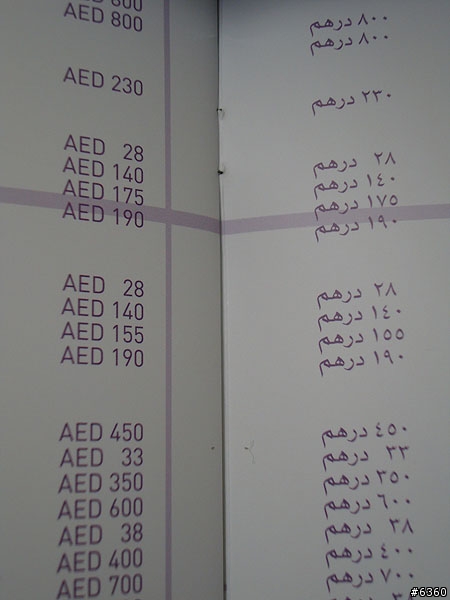 AED 800
AED 800
AED 230
AED 28
AED 140
AED 175
AED 190
AED 28
AED 140
AED 155
AED 190
AED 450
AED 33
AED 350
AED 600
AED 38
AED 400
AED 700
٨٠٠ درهم
٨٠٠ درهم
٢٣٠ درهم
٢٨ درهم
١٤٠ درهم
١٧٥ درهم
١٩٠ درهم
٢٨ درهم
١٤٠ درهم
١٥٥ درهم
١٩٠ درهم
٤٥٠ درهم
٣٣ درهم
٣٥٠ درهم
٦٠٠ درهم
٣٨ درهم
٤٠٠ درهم
٧٠٠ درهم
#6360